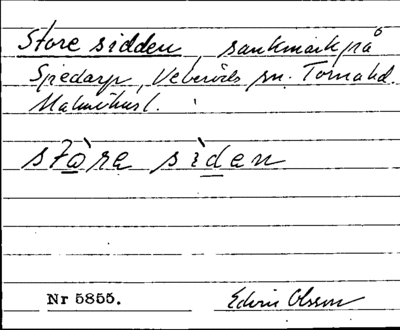 Store sidden, sankmark på
Spjedarp, Veberöds sn. Torna hd.
Malmöhus l.
stòre sìden
Nr 5855.
Edvin Olsson